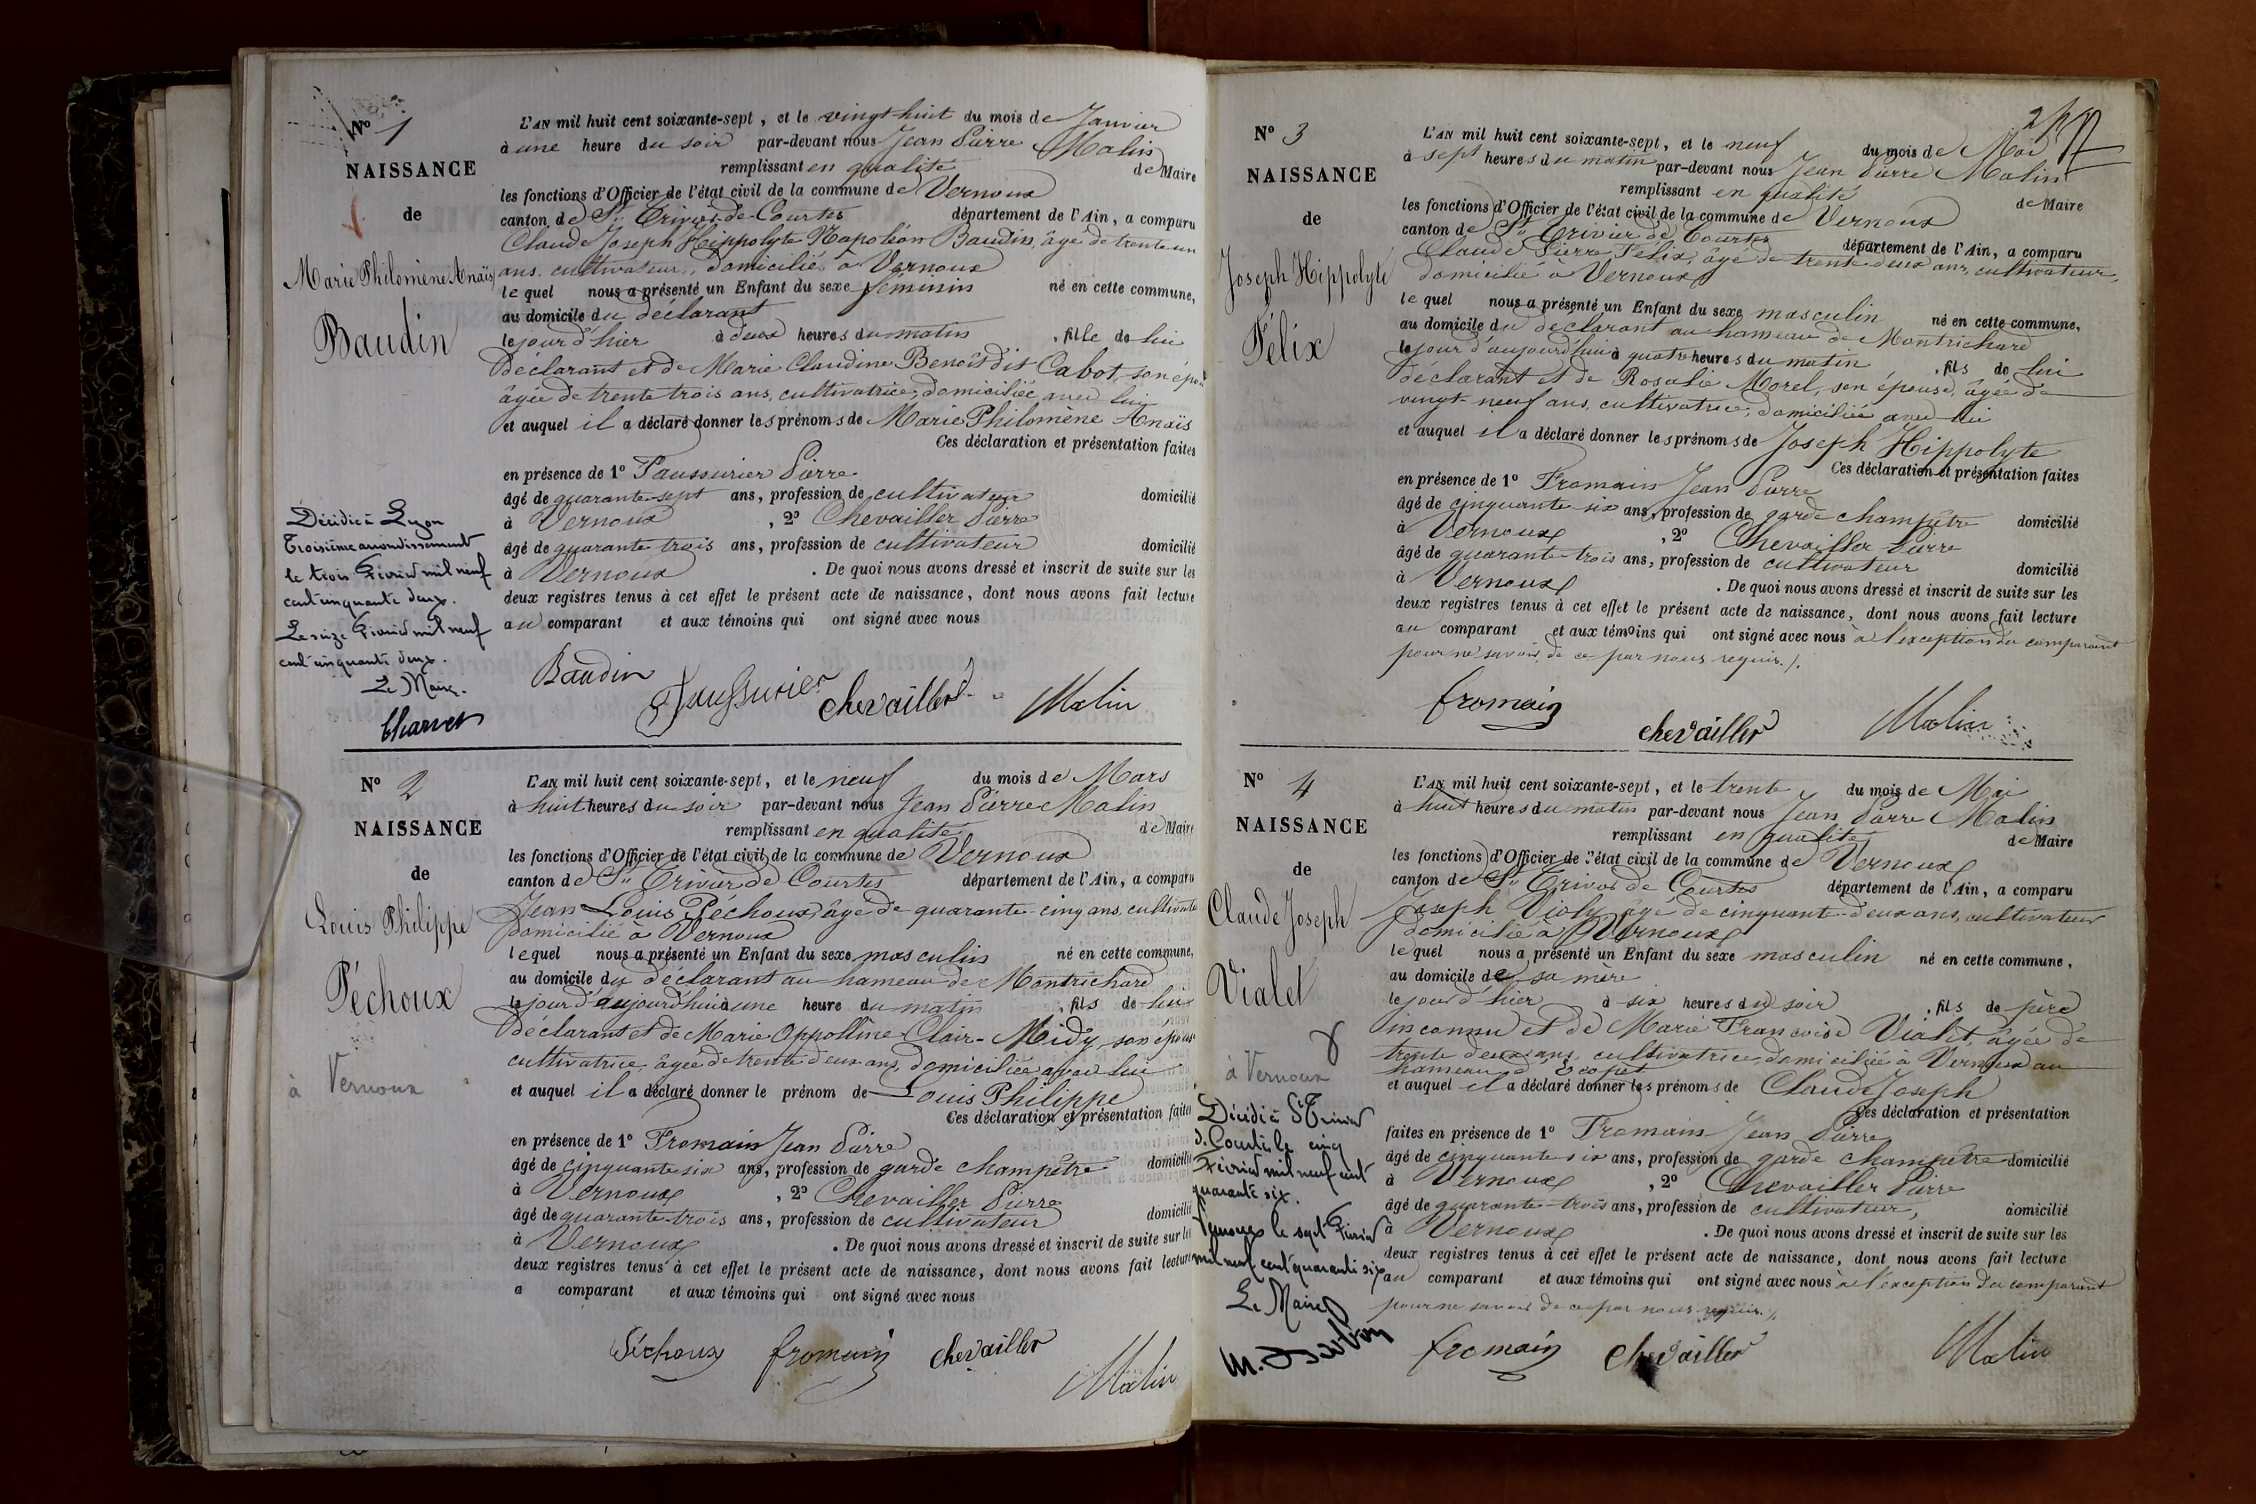 N° 1
NAISSANCE
de
Marie Philomène Anaïs
Baudin
L'AN mil huit cent soixante-sept, et le vingt-huit du mois de Janvier
à une heure du soir par-devant nous Jean Pierre Malin
remplissant en qualité de Maire
les fonctions d'Officier de l'état civil de la commune de Vernoux
canton de St Trivier-de-Courtes département de l'Ain, a comparu
Claude Joseph Hippolyte Napoléon Baudin, âgé de trente un
ans, cultivateur, domicilié à Vernoux
lequel nous a présenté un Enfant du sexe féminin né en cette commune,
au domicile du déclarant
le jour d'hier à deux heures du matin, fille de lui
déclarant et de Marie Claudine Benoît dit Cabot, son épouse
âgée de trente trois ans, cultivatrice, domiciliée avec lui
et auquel il a déclaré donner les prénoms de Marie Philomène Anaïs
Ces déclaration et présentation faites
en présence de 1° Faussurier Pierre
âgé de quarante-sept ans, profession de cultivateur domicilié
à Vernoux, 2° Chevailler Pierre
âgé de quarante-trois ans, profession de cultivateur domicilié
à Vernoux. De quoi nous avons dressé et inscrit de suite sur les
deux registres tenus à cet effet le présent acte de naissance, dont nous avons fait lecture
au comparant et aux témoins qui ont signé avec nous
Décidée à Lyon
Troisième arrondissement
le trois Février mil neuf
cent cinquante deux.
Le seize Février mil neuf
cent cinquante deux.
Le Maire.
Baudin Faussurier Chevailler Malin
N° 2
NAISSANCE
de
Louis Philippe
Péchoux
à Vernoux
L'AN mil huit cent soixante-sept, et le neuf du mois de Mars
à huit heures du soir par-devant nous Jean Pierre Malin
remplissant en qualité de Maire
les fonctions d'Officier de l'état civil de la commune de Vernoux
canton de St Trivier de Courtes département de l'Ain, a comparu
Jean Louis Péchoux âgé de quarante-cinq ans, cultivateur
domicilié à Vernoux
lequel nous a présenté un Enfant du sexe masculin né en cette commune,
au domicile du déclarant au hameau de Montrichard
le jour d'aujourd'hui à une heure du matin, fils de lui
déclarant et de Marie Appolline Clair-Midy, son épouse
cultivatrice, âgée de trente deux ans, domiciliée avec lui
et auquel il a déclaré donner le prénom de Louis Philippe
Ces déclaration et présentation faites
en présence de 1° Fromain Jean Pierre
âgé de cinquante six ans, profession de garde champêtre domicilié
à Vernoux, 2° Chevailler Pierre
âgé de quarante-trois ans, profession de cultivateur domicilié
à Vernoux. De quoi nous avons dressé et inscrit de suite sur les
deux registres tenus à cet effet le présent acte de naissance, dont nous avons fait lecture
a comparant et aux témoins qui ont signé avec nous
Péchoux fromain Chevailler Malin
N° 3
NAISSANCE
de
Joseph Hippolyte
Félix
L'AN mil huit cent soixante-sept, et le neuf du mois de Mai
à sept heures du matin par-devant nous Jean Pierre Malin
remplissant en qualité de Maire
les fonctions d'Officier de l'état civil de la commune de Vernoux
canton de St Trivier de Courtes département de l'Ain, a comparu
Claude Pierre Félix, âgé de trente deux ans, cultivateur,
domicilié à Vernoux
lequel nous a présenté un Enfant du sexe masculin né en cette commune,
au domicile du déclarant au hameau de Montrichard
le jour d'aujourd'hui à quatre heures du matin, fils de lui
déclarant et de Rosalie Morel, son épouse, âgée de
vingt-neuf ans, cultivatrice, domiciliée avec lui
et auquel il a déclaré donner les prénoms de Joseph Hippolyte
Ces déclaration et présentation faites
en présence de 1° Fromain Jean Pierre
âgé de cinquante-six ans, profession de garde champêtre domicilié
à Vernoux, 2° Chevailler Pierre
âgé de quarante-trois ans, profession de cultivateur domicilié
à Vernoux. De quoi nous avons dressé et inscrit de suite sur les
deux registres tenus à cet effet le présent acte de naissance, dont nous avons fait lecture
au comparant et aux témoins qui ont signé avec nous à l'exception du comparant
pour ne savoir, de ce par nous requis./.
fromain Chevailler Malin
N° 4
NAISSANCE
de
Claude Joseph
Vialet
à Vernoux
L'AN mil huit cent soixante-sept, et le trente du mois de Mai
à huit heures du matin par-devant nous Jean Pierre Malin
remplissant en qualité de Maire
les fonctions d'Officier de l'état civil de la commune de Vernoux
canton de St Trivier de Courtes département de l'Ain, a comparu
Joseph Violy âgé de cinquante-deux ans, cultivateur
domicilié à Vernoux
lequel nous a présenté un Enfant du sexe masculin né en cette commune,
au domicile de sa mère
le jour d'hier à six heures du soir, fils de père
inconnu et de Marie Françoise Vialet, âgée de
trente deux ans, cultivatrice, domiciliée à Vernoux au
hameau d'Ecopet
et auquel il a déclaré donner les prénoms de Claude Joseph
Ces déclaration et présentation
faites en présence de 1° Fromain Jean Pierre
âgé de cinquante six ans, profession de garde champêtre domicilié
à Vernoux, 2° Chevailler Pierre
âgé de quarante-trois ans, profession de cultivateur, domicilié
à Vernoux. De quoi nous avons dressé et inscrit de suite sur les
deux registres tenus à cet effet le présent acte de naissance, dont nous avons fait lecture
au comparant et aux témoins qui ont signé avec nous à l'exception du comparant
pour ne savoir de ce par nous requis./.
Décidé à St Trivier
d. Courtes le cinq
Février mil neuf cent
quarante six.
Vernoux le sept Février
mil neuf cent quarante six
Le Maire
fromain Chevailler Malin